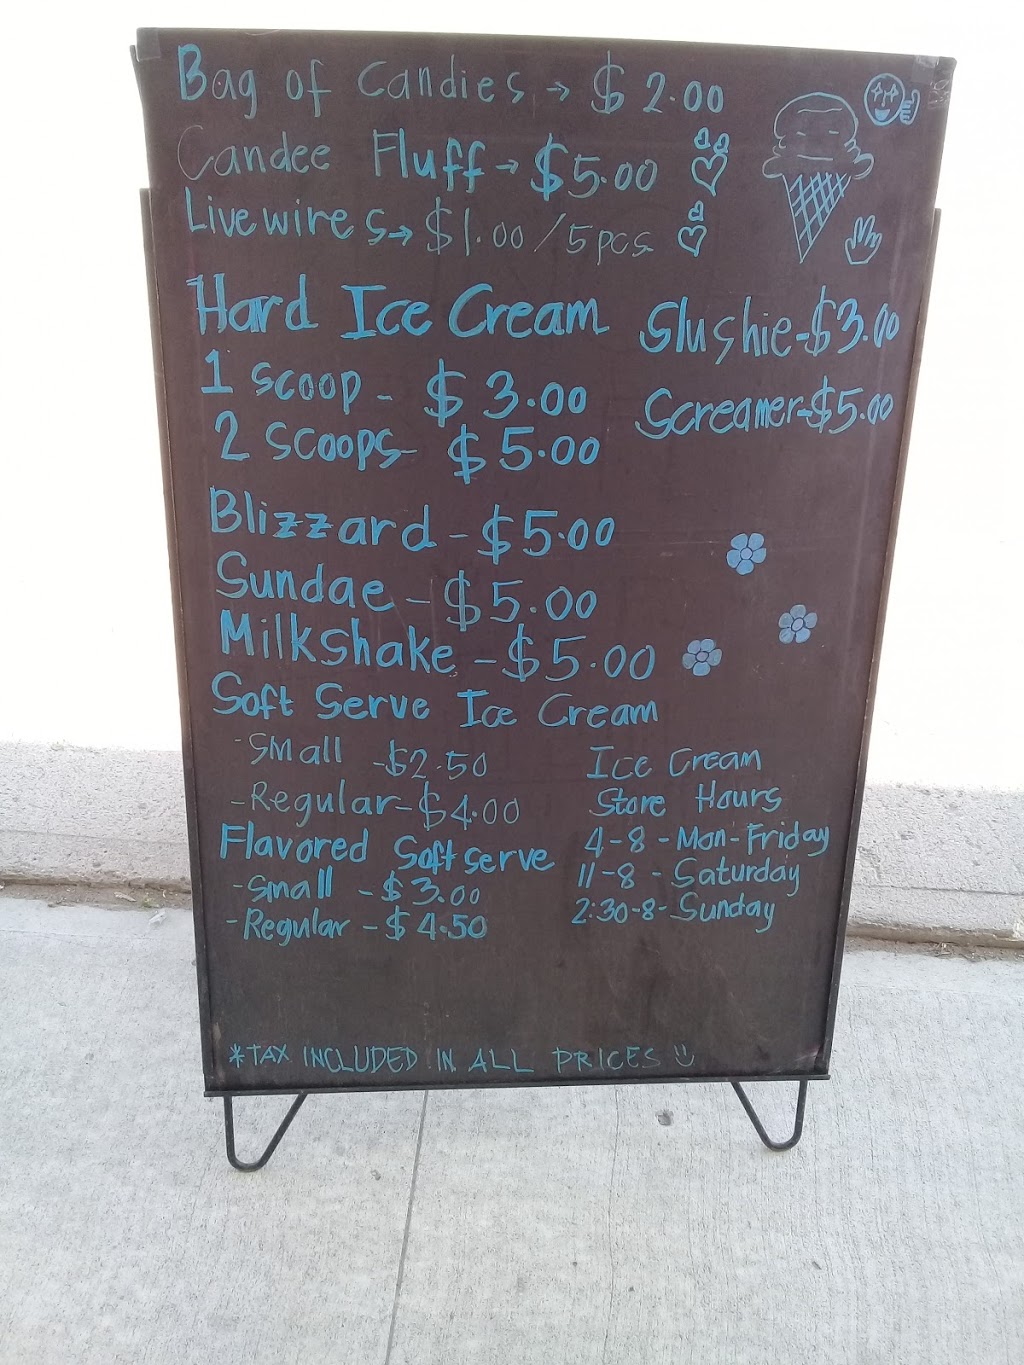 Bag of Candies → $2.00
Candee Fluff → $5.00
Livewires → $1.00/5pcs
Hard Ice Cream
1 scoop - $3.00
2 scoops - $5.00
Slushie - $3.00
Screamer - $5.00
Blizzard - $5.00
Sundae - $5.00
Milkshake - $5.00
Soft Serve Ice Cream
- Small - $2.50
- Regular - $4.00
Flavored Soft serve
- Small - $3.00
- Regular - $4.50
Ice Cream
Store Hours
4-8 - Mon-Friday
11-8 - Saturday
2:30-8- Sunday
*TAX INCLUDED IN ALL PRICES